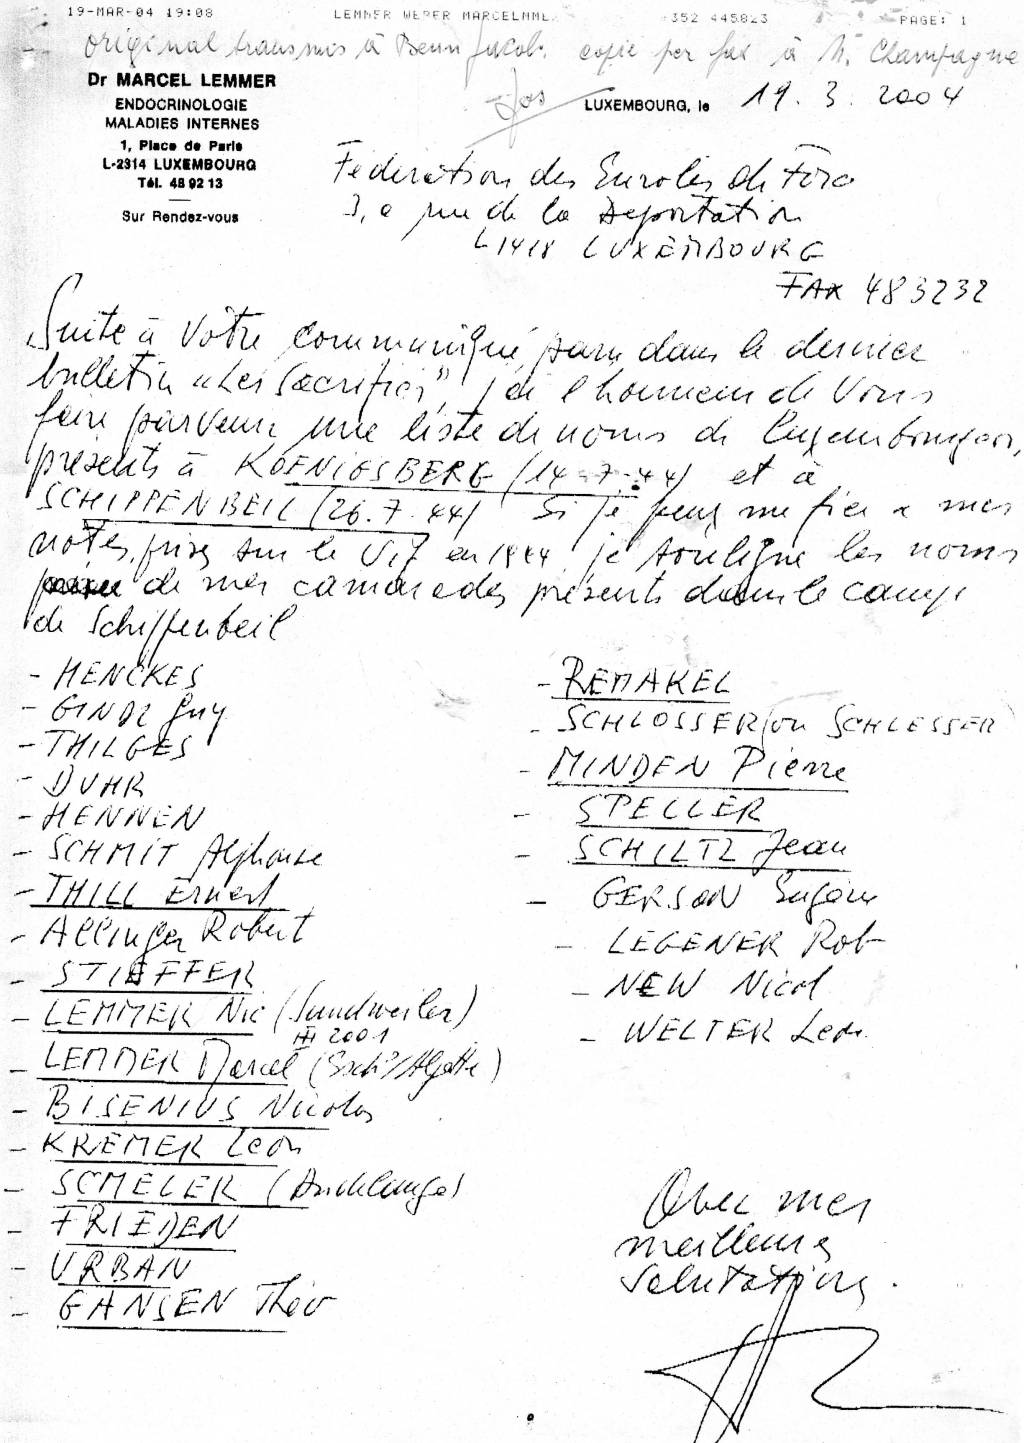 19-MAR-04 19:08 LEMMER WEBER MARCELMME 352 445823 PAGE: 1
original transmis à Benn Jakob. copie per fax à M. Champagne
Dr MARCEL LEMMER
ENDOCRINOLOGIE
MALADIES INTERNES
1, Place de Paris
L-2314 LUXEMBOURG
Tél. 48 92 13
Sur Rendez-vous
Jos LUXEMBOURG, le 19. 3. 2004
Féderation des Enrolés de Force
3, a rue de la Deportation
L 1418 LUXEMBOURG
FAX 483232
Suite à Votre communiqué paru dans le dernier
bulletin "Les Sacrifiés", j'ai l'honneur de Vous
faire parvenir une liste de noms de luxembourgeois,
présents à KOENIGSBERG (14-7-44) et à
SCHIPPENBEIL (26.7.44) Si je peux me fier à mes
notes, prises sur le vif en 1944, je souligne les noms
de mes camarades présents dans le camp
de Schippenbeil
- HENCKES
- GINDL Guy
- THILGES
- DUHR
- HENNEN
- SCHMIT Alphonse
- THILL Ernest
- Allinger Robert
- STIEFFER
- LEMMER Nic (Junckweiler)
III 2001
- LEMMER Marcel (Esch s/Alzette)
- BISENIUS Nicolas
- KREMER Leon
- SCMELER (Dudelange)
- FRIEDEN
- URBAN
- GANSEN Théo
- REMAKEL
- SCHLOSSER (ou SCHLESSER
- MINDEN Pierre
- SPELLER
- SCHILTZ Jean
- GERSON Eugène
- LEGENER Rob
- NEW Nicol
- WELTER Leon
Avec mes
meilleures
salutations.